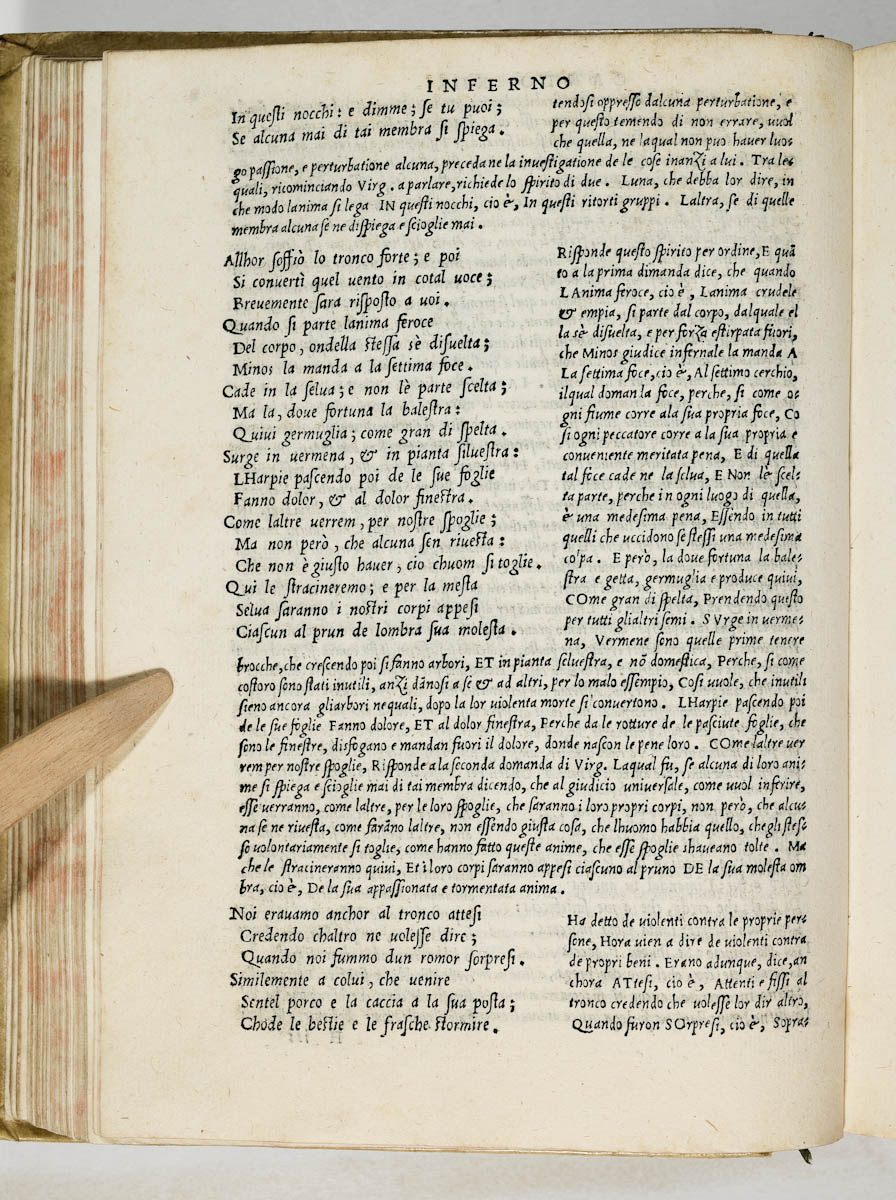 INFERNO
In questi nocchi: e dimme; se tu puoi;
Se alcuna mai di tai membra si spiega.
tendosi oppresso dalcuna perturbatione, e
per questo temendo di non errare, uuol
che quella, ne laqual non puo hauer luo=
go passione, e perturbatione alcuna, preceda ne la inuestigatione de le cose inanzi a lui. Tra le=
quali, ricominciando Virg. a parlare, richiede lo spirito di due. Luna, che debba lor dire, in
che modo lanima si lega IN questi nocchi, cio è, In questi ritorti gruppi. Laltra, se di quelle
membra alcuna se ne dispiega e scioglie mai.
Allhor soffiò lo tronco forte; e poi
Si conuertì quel uento in cotal uoce;
Breuemente sara risposto a uoi.
Quando si parte lanima feroce
Del corpo, ondella stessa sè disuelta;
Minos la manda a la settima foce.
Cade in la selua; e non lè parte scelta;
Ma la, doue fortuna la balestra:
Quiui germuglia; come gran di spelta.
Surge in uermena, & in pianta siluestra:
LHarpie pascendo poi de le sue foglie
Fanno dolor, & al dolor finestra.
Come laltre uerrem, per nostre spoglie;
Ma non però, che alcuna sen riuesta:
Che non è giusto hauer, cio chuom si toglie.
Qui le stracineremo; e per la mesta
Selua saranno i nostri corpi appesi
Ciascun al prun de lombra sua molesta.
Risponde questo spirito per ordine, E quã
to a la prima dimanda dice, che quando
LAnima feroce, cio è, Lanima crudele
& empia, si parte dal corpo, dalquale el
la sè disuelta, e per forza estirpata fuori,
che Minos giudice infernale la manda A
La settima foce, cio è, Al settimo cerchio,
ilqual doman la foce, perche, si come o=
gni fiume corre ala sua propria foce, Co
si ogni peccatore corre a la sua propria e
conueniente meritata pena, E di quella
tal foce cade ne la selua, E Non lè scel=
ta parte, perche in ogni luogo di quella,
è una medesima pena, Essendo in tutti
quelli che uccidono se stessi una medesima
colpa. E però, la doue fortuna la bale=
stra e getta, germuglia e produce quiui,
COme gran di spelta, Prendendo questo
per tutti glialtri semi. SVrge in uerme=
na, Vermene sono quelle prime tenere
brocche, che crescendo poi si fanno arbori, ET in pianta seluestra, e nõ domestica, Perche, si come
costoro sono stati inutili, anzi dãnosi a se & ad altri, per lo malo essempio, Cosi uuole, che inutili
sieno ancora gliarbori nequali, dopo la lor uiolenta morte si conuertono. LHarpie pascendo poi
de le sue foglie Fanno dolore, ET al dolor finestra, Perche da le rotture de le pasciute foglie, che
sono le finestre, disfogano e mandan fuori il dolore, donde nascon le pene loro. COme laltre uer
rem per nostre spoglie, Risponde a la seconda domanda di Virg. Laqual fu, se alcuna di loro ani=
me si spiega e scioglie mai di tai membra dicendo, che al giudicio uniuersale, come uuol inferire,
esse uerranno, come laltre, per le loro spoglie, che saranno i loro propri corpi, non però, che alcu=
na se ne riuesta, come farãno laltre, non essendo giusta cosa, che lhuomo habbia quello, che gli stes=
so uolontariamente si toglie, come hanno fatto queste anime, che esse spoglie shaueano tolte. Ma
che le stracineranno quiui, Et i loro corpi saranno appesi ciascuno al pruno DE la sua molesta om
bra, cio è, De la sua appassionata e tormentata anima.
Noi erauamo anchor al tronco attesi
Credendo chaltro ne uolesse dire;
Quando noi fummo dun romor sorpresi.
Similemente a colui, che uenire
Sentel porco e la caccia a la sua posta;
Chode le bestie e le frasche stormire.
Ha detto de uiolenti contra le proprie per=
sone, Hora uien a dire de uiolenti contra
de propri beni. Erano adunque, dice, an
chora ATtesi, cio è, Attenti e fissi al
tronco credendo che uolesse lor dir altro,
Quando furon SOrpresi, cio è, Sopra=